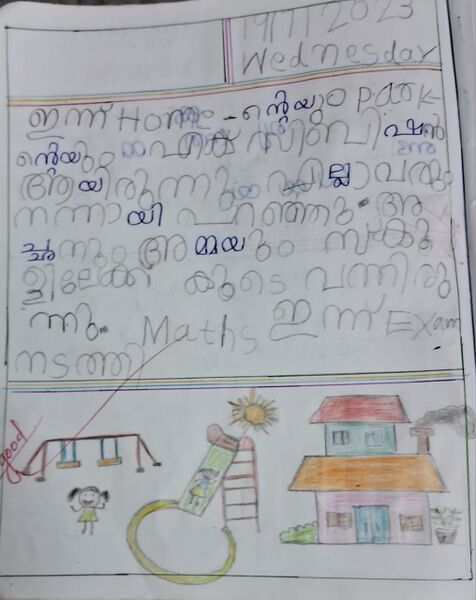 19/7/2023
Wednesday
ഇന്ന് Home - ന്റെയും park
ന്റെയും പിക് സിംബിഷൻ
ആയിരുന്നു. എല്ലാവരും
നന്നായി പറഞ്ഞു. അ
ച്ഛനും അമ്മയും സ്കൂ
ളിലേക്ക് കൂടെ വന്നിരു
ന്നു. Maths ഇന്ന് Exam
നടത്തി
good